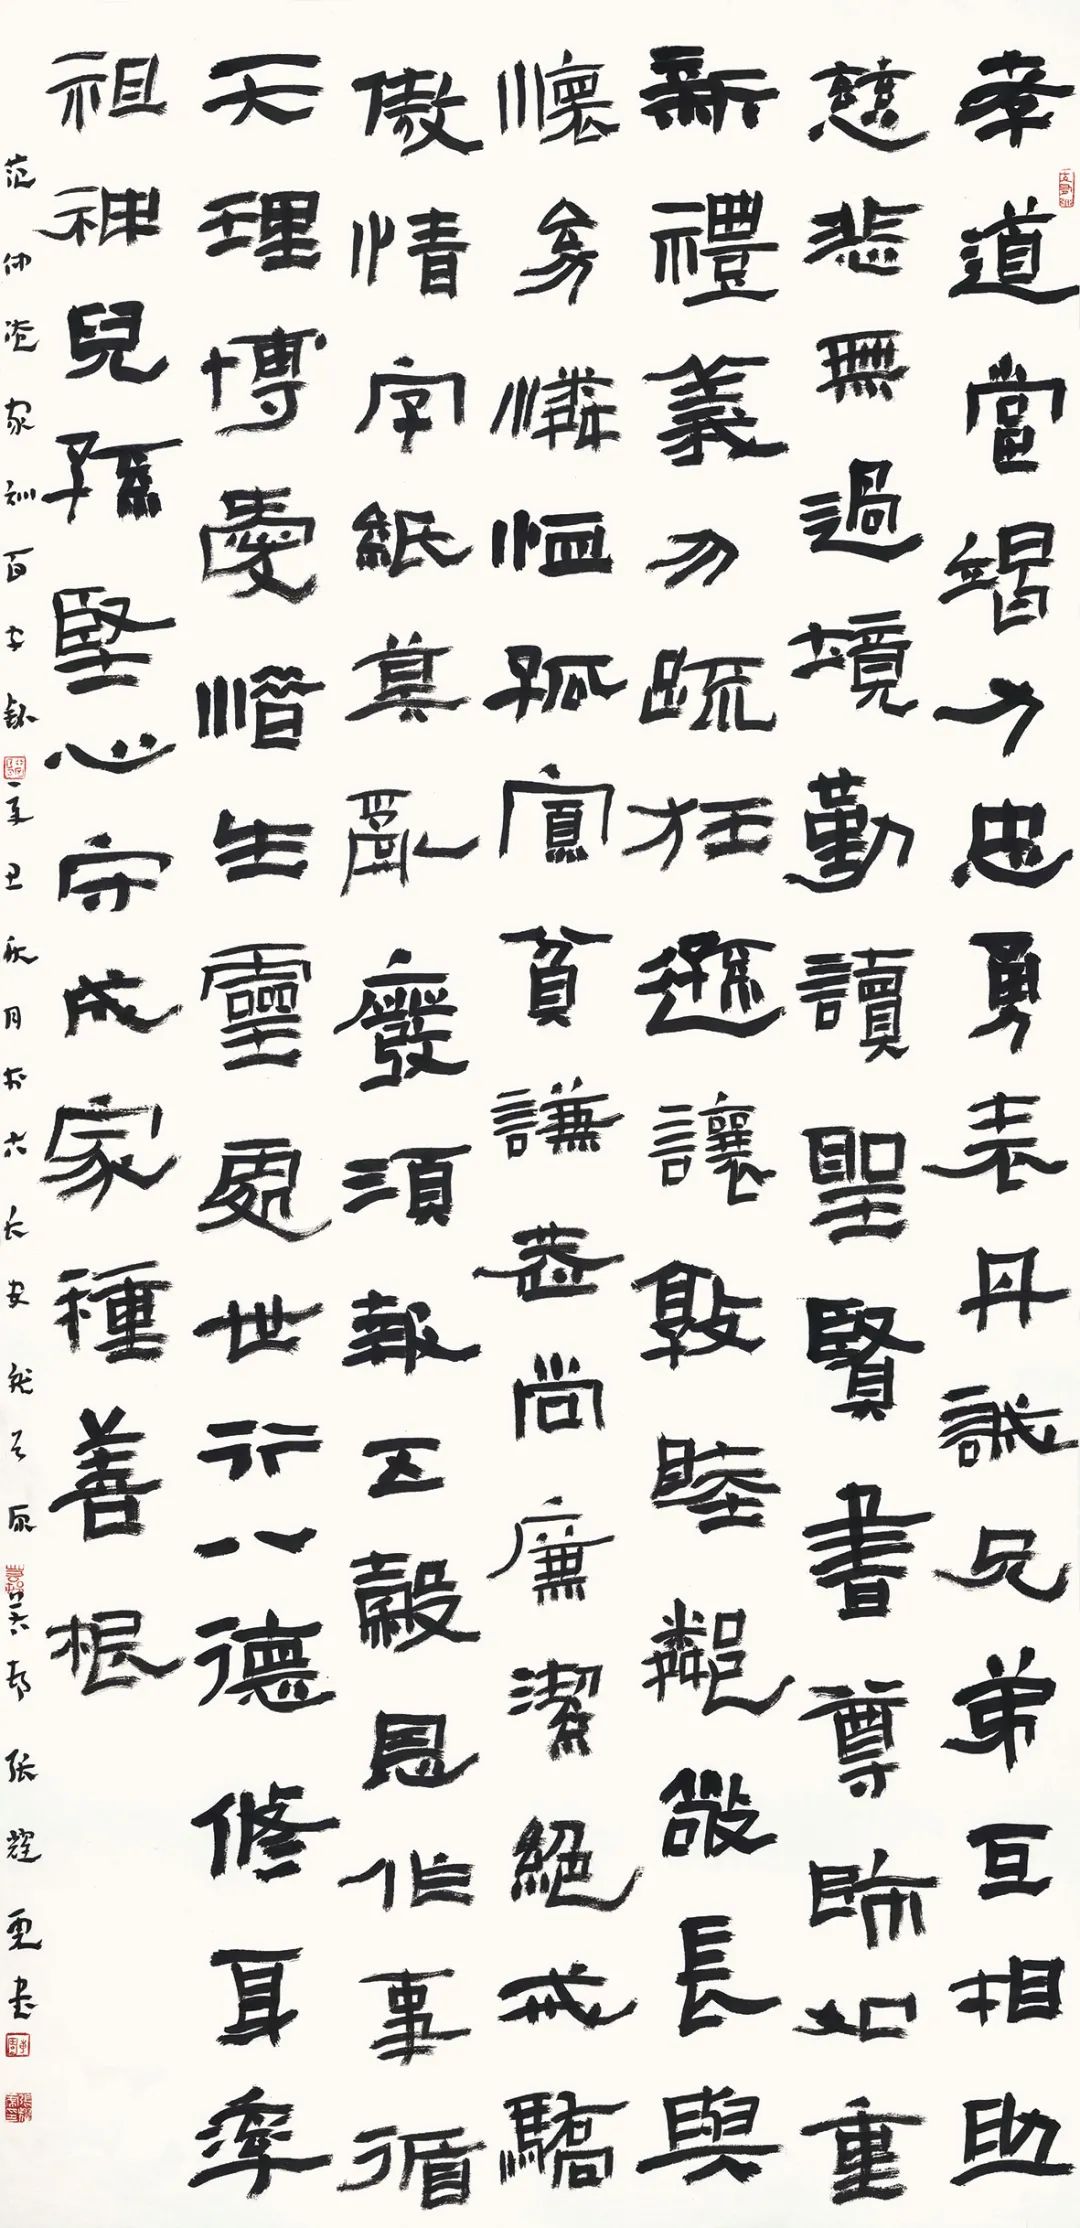 孝道當竭力忠勇表丹誠兄弟互相助
慈悲無過境勤讀聖賢書尊師如重
新禮義勿疏狂遜讓敦睦鄰敬長與
懷幼憐恤孤寡貧謙恭尚廉潔絕戒驕
傲情字紙莫亂廢須報五穀恩作事循
天理博愛惜生靈處世行八德修身率
祖神兒孫堅心守成家種善根
范仲淹家訓百字銘 辛丑秋月於古長安 張 書